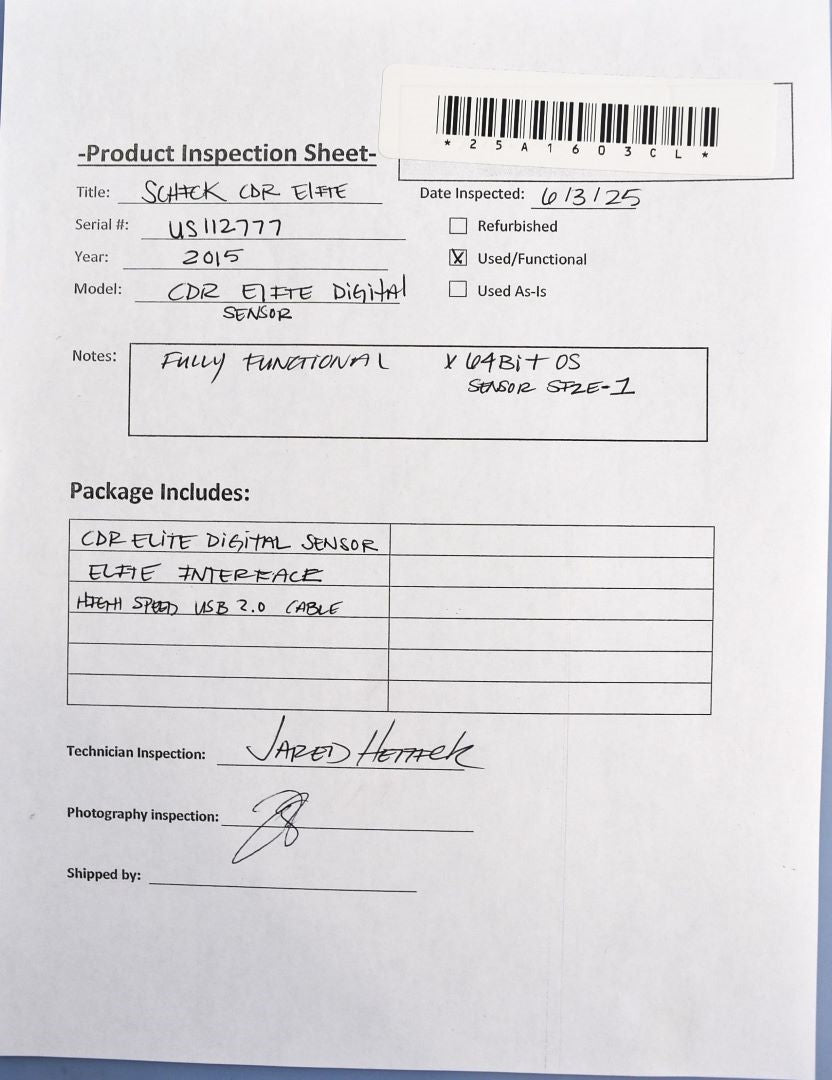 * 2 5 A 1 6 0 3 C L *
-Product Inspection Sheet-
Title: SCHICK CDR ElITE
Date Inspected: 6/3/25
Serial #: US112777
Refurbished
Year: 2015
X Used/Functional
Model: CDR ElITE DiGiTAl
SENSOR
Used As-Is
Notes: FUlly FUNCTIONAL X 64BiT OS
SENSOR SIZE-1
Package Includes:
CDR ELiTE DiGiTAL SENSOR
ELITE INTERFACE
HIGH SPEED USB 2.0 CABLE
Technician Inspection: JARED
Photography inspection:
Shipped by: